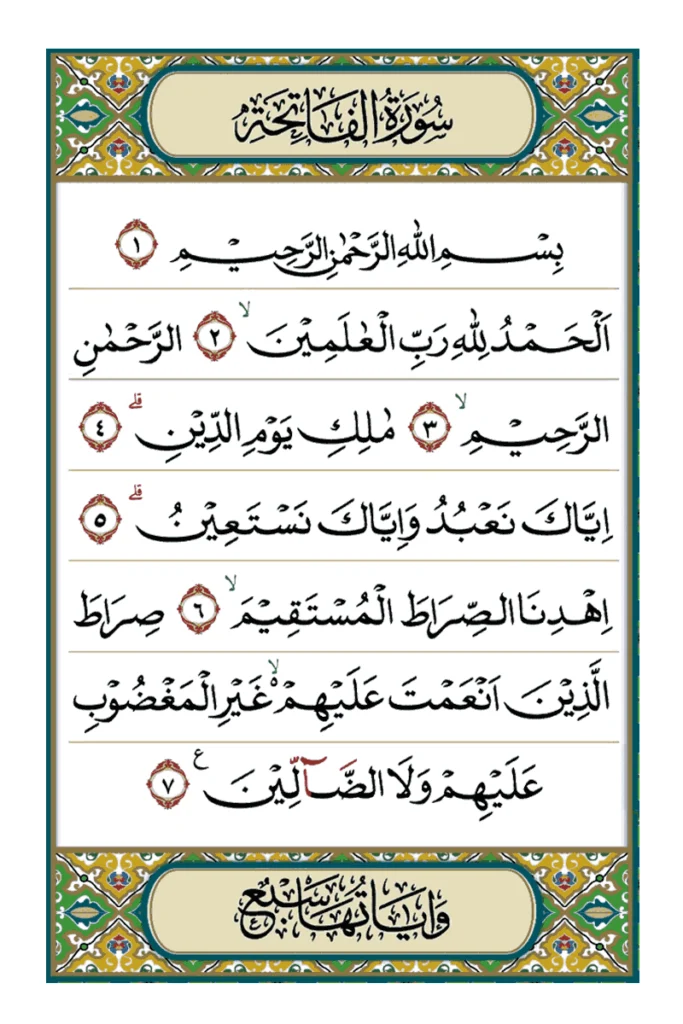 سُوْرَةُ الْفَاتِحَةِ
بِسْمِ اللّٰهِ الرَّحْمٰنِ الرَّحِيْمِ ١
اَلْحَمْدُ لِلّٰهِ رَبِّ الْعٰلَمِيْنَۙ ٢ الرَّحْمٰنِ
الرَّحِيْمِۙ ٣ مٰلِكِ يَوْمِ الدِّيْنِۗ ٤
اِيَّاكَ نَعْبُدُ وَاِيَّاكَ نَسْتَعِيْنُۗ ٥
اِهْدِنَا الصِّرَاطَ الْمُسْتَقِيْمَۙ ٦ صِرَاطَ
الَّذِيْنَ اَنْعَمْتَ عَلَيْهِمْ ەۙ غَيْرِ الْمَغْضُوْبِ
عَلَيْهِمْ وَلَا الضَّاۤلِّيْنَ ࣖ ٧
وَاٰيَاتُهَا سَبْعٌ